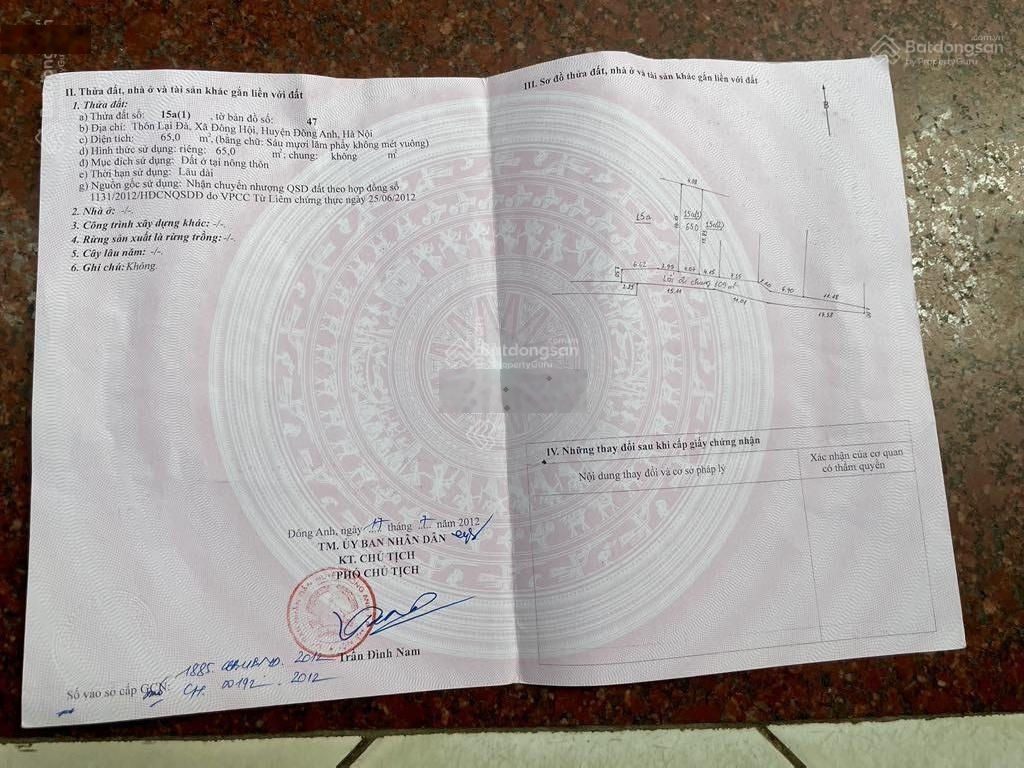 Batdongsan.com.vn
by PropertyGuru
II. Thửa đất, nhà ở và tài sản khác gắn liền với đất
1. Thửa đất:
a) Thửa đất số: 15a(1) , tờ bản đồ số: 47
b) Địa chỉ: Thôn Lại Đà, Xã Đông Hội, Huyện Đông Anh, Hà Nội
c) Diện tích: 65,0 m², (bằng chữ: Sáu mươi lăm phẩy không mét vuông)
d) Hình thức sử dụng: riêng: 65,0 m²; chung: không m²
đ) Mục đích sử dụng: Đất ở tại nông thôn
e) Thời hạn sử dụng: Lâu dài
g) Nguồn gốc sử dụng: Nhận chuyển nhượng QSD đất theo hợp đồng số
1131/2012/HDCNQSDĐ do VPCC Từ Liêm chứng thực ngày 25/06/2012
2. Nhà ở: -/-.
3. Công trình xây dựng khác: -/-.
4. Rừng sản xuất là rừng trồng: -/-.
5. Cây lâu năm: -/-.
6. Ghi chú: Không.
Đông Anh, ngày 17 tháng 7 năm 2012
TM. ỦY BAN NHÂN DÂN
KT. CHỦ TỊCH
PHÓ CHỦ TỊCH
Trần Đình Nam
1885. 2012
Số vào sổ cấp GCN: CH. 00192 . 2012
III. Sơ đồ thửa đất, nhà ở và tài sản khác gắn liền với đất
B
4.08
15a
15a(1)
65.0
15a(2)
6.62 2.99 4.07 4.15 7.55
6.90
11.18
2.25
15.11
11.01
17.58
Lối đi chung 109 m²
Batdongsan.com.vn
by PropertyGuru
IV. Những thay đổi sau khi cấp giấy chứng nhận
Nội dung thay đổi và cơ sở pháp lý
Xác nhận của cơ quan
có thẩm quyền